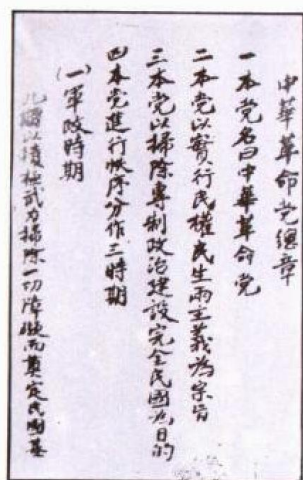 中華革命党總章
一 本党名曰中華革命党
二 本党以實行民權民生兩主義為宗旨
三 本党以掃除專制政治建設完全民國為目的
四 本党進行秩序分作三時期
(一)軍政時期
此期以積極武力掃除一切障礙而奠定民國基